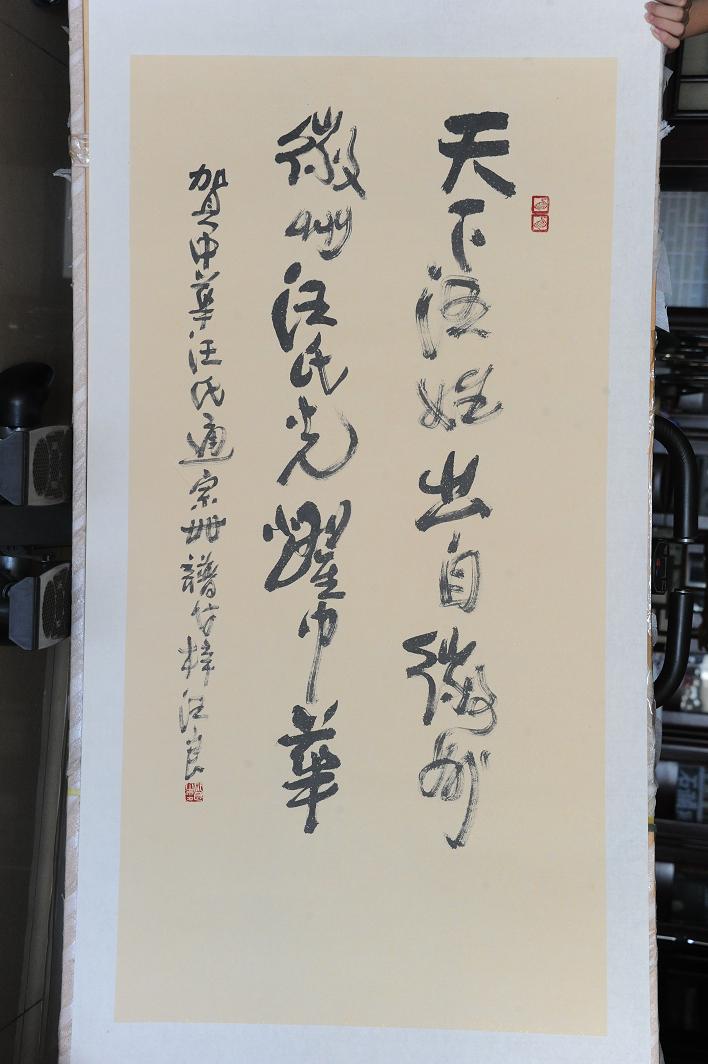 天下汪姓出自徽州
徽州汪氏光耀中華
賀中華汪氏通宗世譜付梓汪良